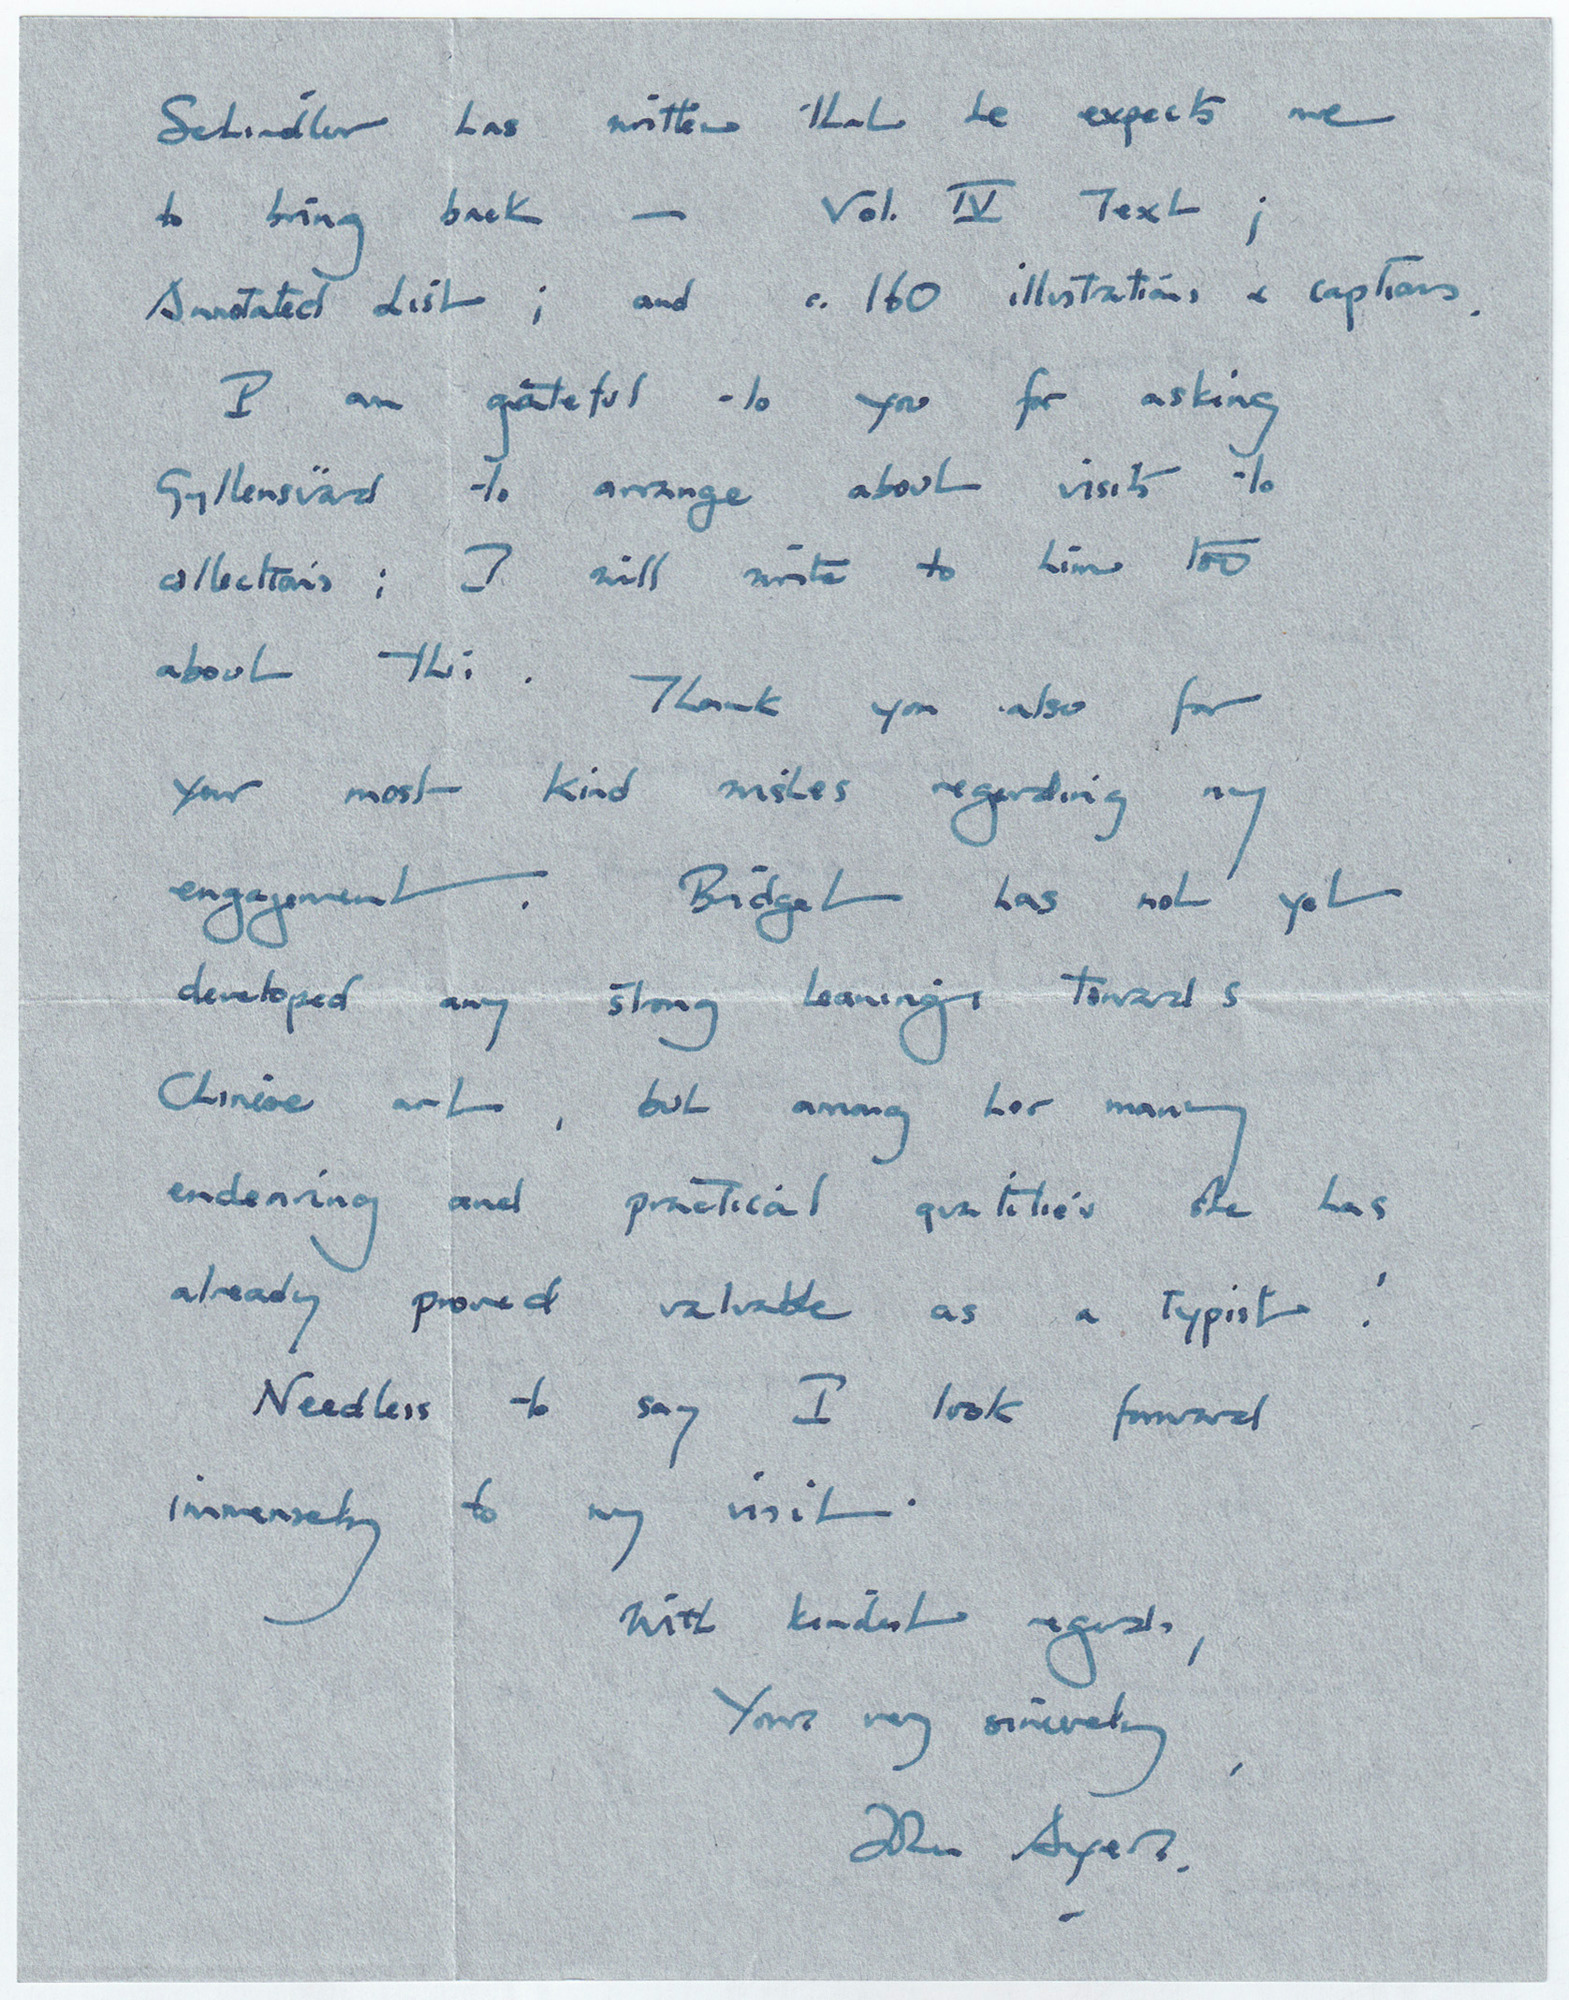 Schindler has written that he expects me
to bring back — Vol. IV Text ;
Annotated List ; and c. 160 illustrations & captions.
I am grateful to you for asking
Gyllensvärd to arrange about visits to
collections ; I will write to him too
about this . Thank you also for
your most kind wishes regarding my
engagement . Bridget has not yet
developed any strong leanings towards
Chinese art , but among her many
endearing and practical qualities she has
already proved valuable as a typist !
Needless to say I look forward
immensely to my visit .
With kindest regards ,
Yours very sincerely ,
John Ayers.